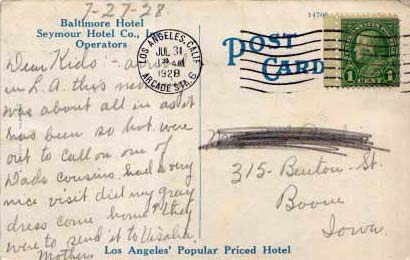 7-27-28
Baltimore Hotel
Seymour Hotel Co., Inc.
Operators
Dear Kids - 
in L.A. this
was about all in as it
has been so hot. were
out to call on one of
Dads cousins, had a very
nice visit did my gray
dress come home? they
were to send it to Visalia.
Mother.
Los Angeles' Popular Priced Hotel
LOS ANGELES, CALIF.
JUL 31
AM
1928
ARCADE STA. 6
POST
CARD
1 1
315 - Benton - St.
Boone
Iowa.